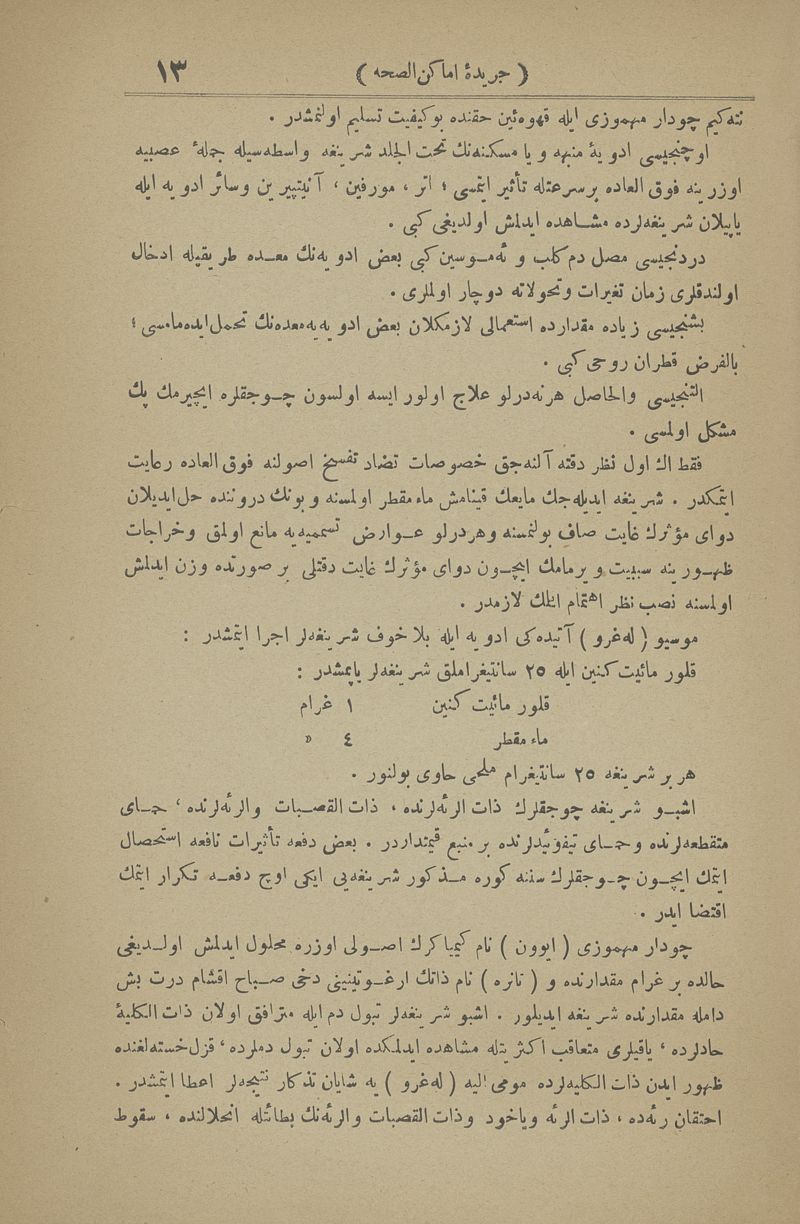 ( جريدهٔ اماكن الصحه ) ١٣
نته‌كيم چودار مهموزى ايله قهوه‌ئين حقنده بو كيفيت تسليم اولنمشدر .
اوچنجيسى ادويهٔ منبهه و يا مسكنه‌نك تحت الجلد شرينغه واسطه‌سيله جملهٔ عصبيه
اوزرينه فوق العاده بر سرعتله تأثير ايتمسى ؛ اتر ، مورفين ، آنتيپيرين وسائر ادويه ايله
ياپيلان شرينغه‌لرده مشاهده ايدلمش اولديغى كبى .
دردنجيسى مصل دم كلب و ئه‌موسين كبى بعض ادويه‌نك معده طريقيله ادخال
اولندقلرى زمان تغيرات وتحولاته دوچار اولملرى .
بشنجيسى زياده مقدارده استعمالى لازمكلان بعض ادويه‌يه معده‌نك تحمل ايده‌مامسى ؛
بالفرض قطران روحى كبى .
التنجيسى والحاصل هر نه‌درلو علاج اولور ايسه اولسون چوجقلره ايچيرمك پك
مشكل اولمسى .
فقط اك اول نظر دقته آلنه‌جق خصوصات تضاد تفسخ اصولنه فوق العاده رعايت
ايتمكدر . شرينغه ايديله‌جك مايعك قينامش ماء مقطر اولمسنه و بونك دروننده حل ايديلان
دواى مؤثرك غايت صاف بولنمسنه وهر درلو عوارض تسمميه‌يه مانع اولمق وخراجات
ظهورينه سببيت ويرمامك ايچون دواى مؤثرك غايت دقتلى بر صورتده وزن ايدلمش
اولمسنه نصب نظر اهتمام ايتمك لازمدر .
موسيو ( له‌غرو ) آتيده‌كى ادويه ايله بلا خوف شرينغه‌لر اجرا ايتمشدر :
قلور مائيت كنين ايله ٢٥ سانتيغراملق شرينغه‌لر ياپمشدر :
قلور مائيت كنين ١ غرام
ماء مقطر ٤ »
هر بر شرينغه ٢٥ سانتيغرام ملحى حاوى بولنور .
اشبو شرينغه چوجقلرك ذات الرئه‌لرنده ، ذات القصبات والرئه‌لرنده ، حماى
متقطعه‌لرنده وحماى تيفوئيدلرنده بر منبع قيمتداردر . بعض دفعه تأثيرات نافعه استحصال
ايتمك ايچون چوجقلرك سننه كوره مذكور شرينغه‌يى ايكى اوچ دفعه تكرار ايتمك
اقتضا ايدر .
چودار مهموزى ( ايوون ) نام كيمياكرك اصولى اوزره محلول ايدلمش اولديغى
حالده بر غرام مقدارنده و ( تانره ) نام ذاتك ارغوتينينى دخى صباح اقشام درت بش
دامله مقدارنده شرينغه ايديلور . اشبو شرينغه‌لر تبول دم ايله مترافق اولان ذات الكليهٔ
حادلرده ، ياقيلرى متعاقب اكثريتله مشاهده ايدلمكده اولان تبول دملرده ، قزل خسته‌لغنده
ظهور ايدن ذات الكليه‌لرده مومى اليه ( له‌غرو ) يه شايان تذكار نتيجه‌لر اعطا ايتمشدر .
احتقان رئه‌ده ، ذات الرئه وياخود وذات القصبات والرئه‌نك بطائتله انحلالنده ، سقوط